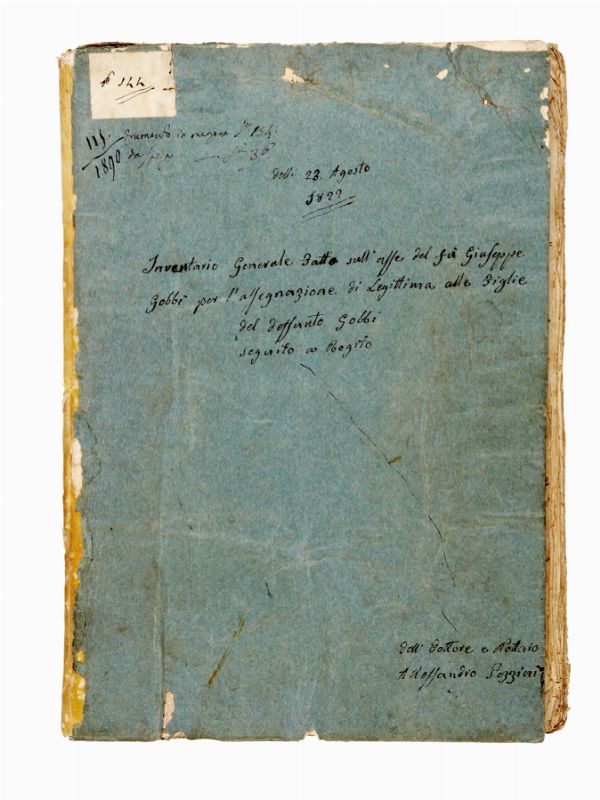 N° 144
115.
1890
frumento in magene 184:
36
delli 23. Agosto
1822
Inventario Generale Fatto sull'asse del fù Giuseppe
Gobbi per l'assegnazione di Legittima alle Figlie
del deffunto Gobbi
seguito a Rogito
Dall' Dottore e Nottaio
Allessandro Pozziori